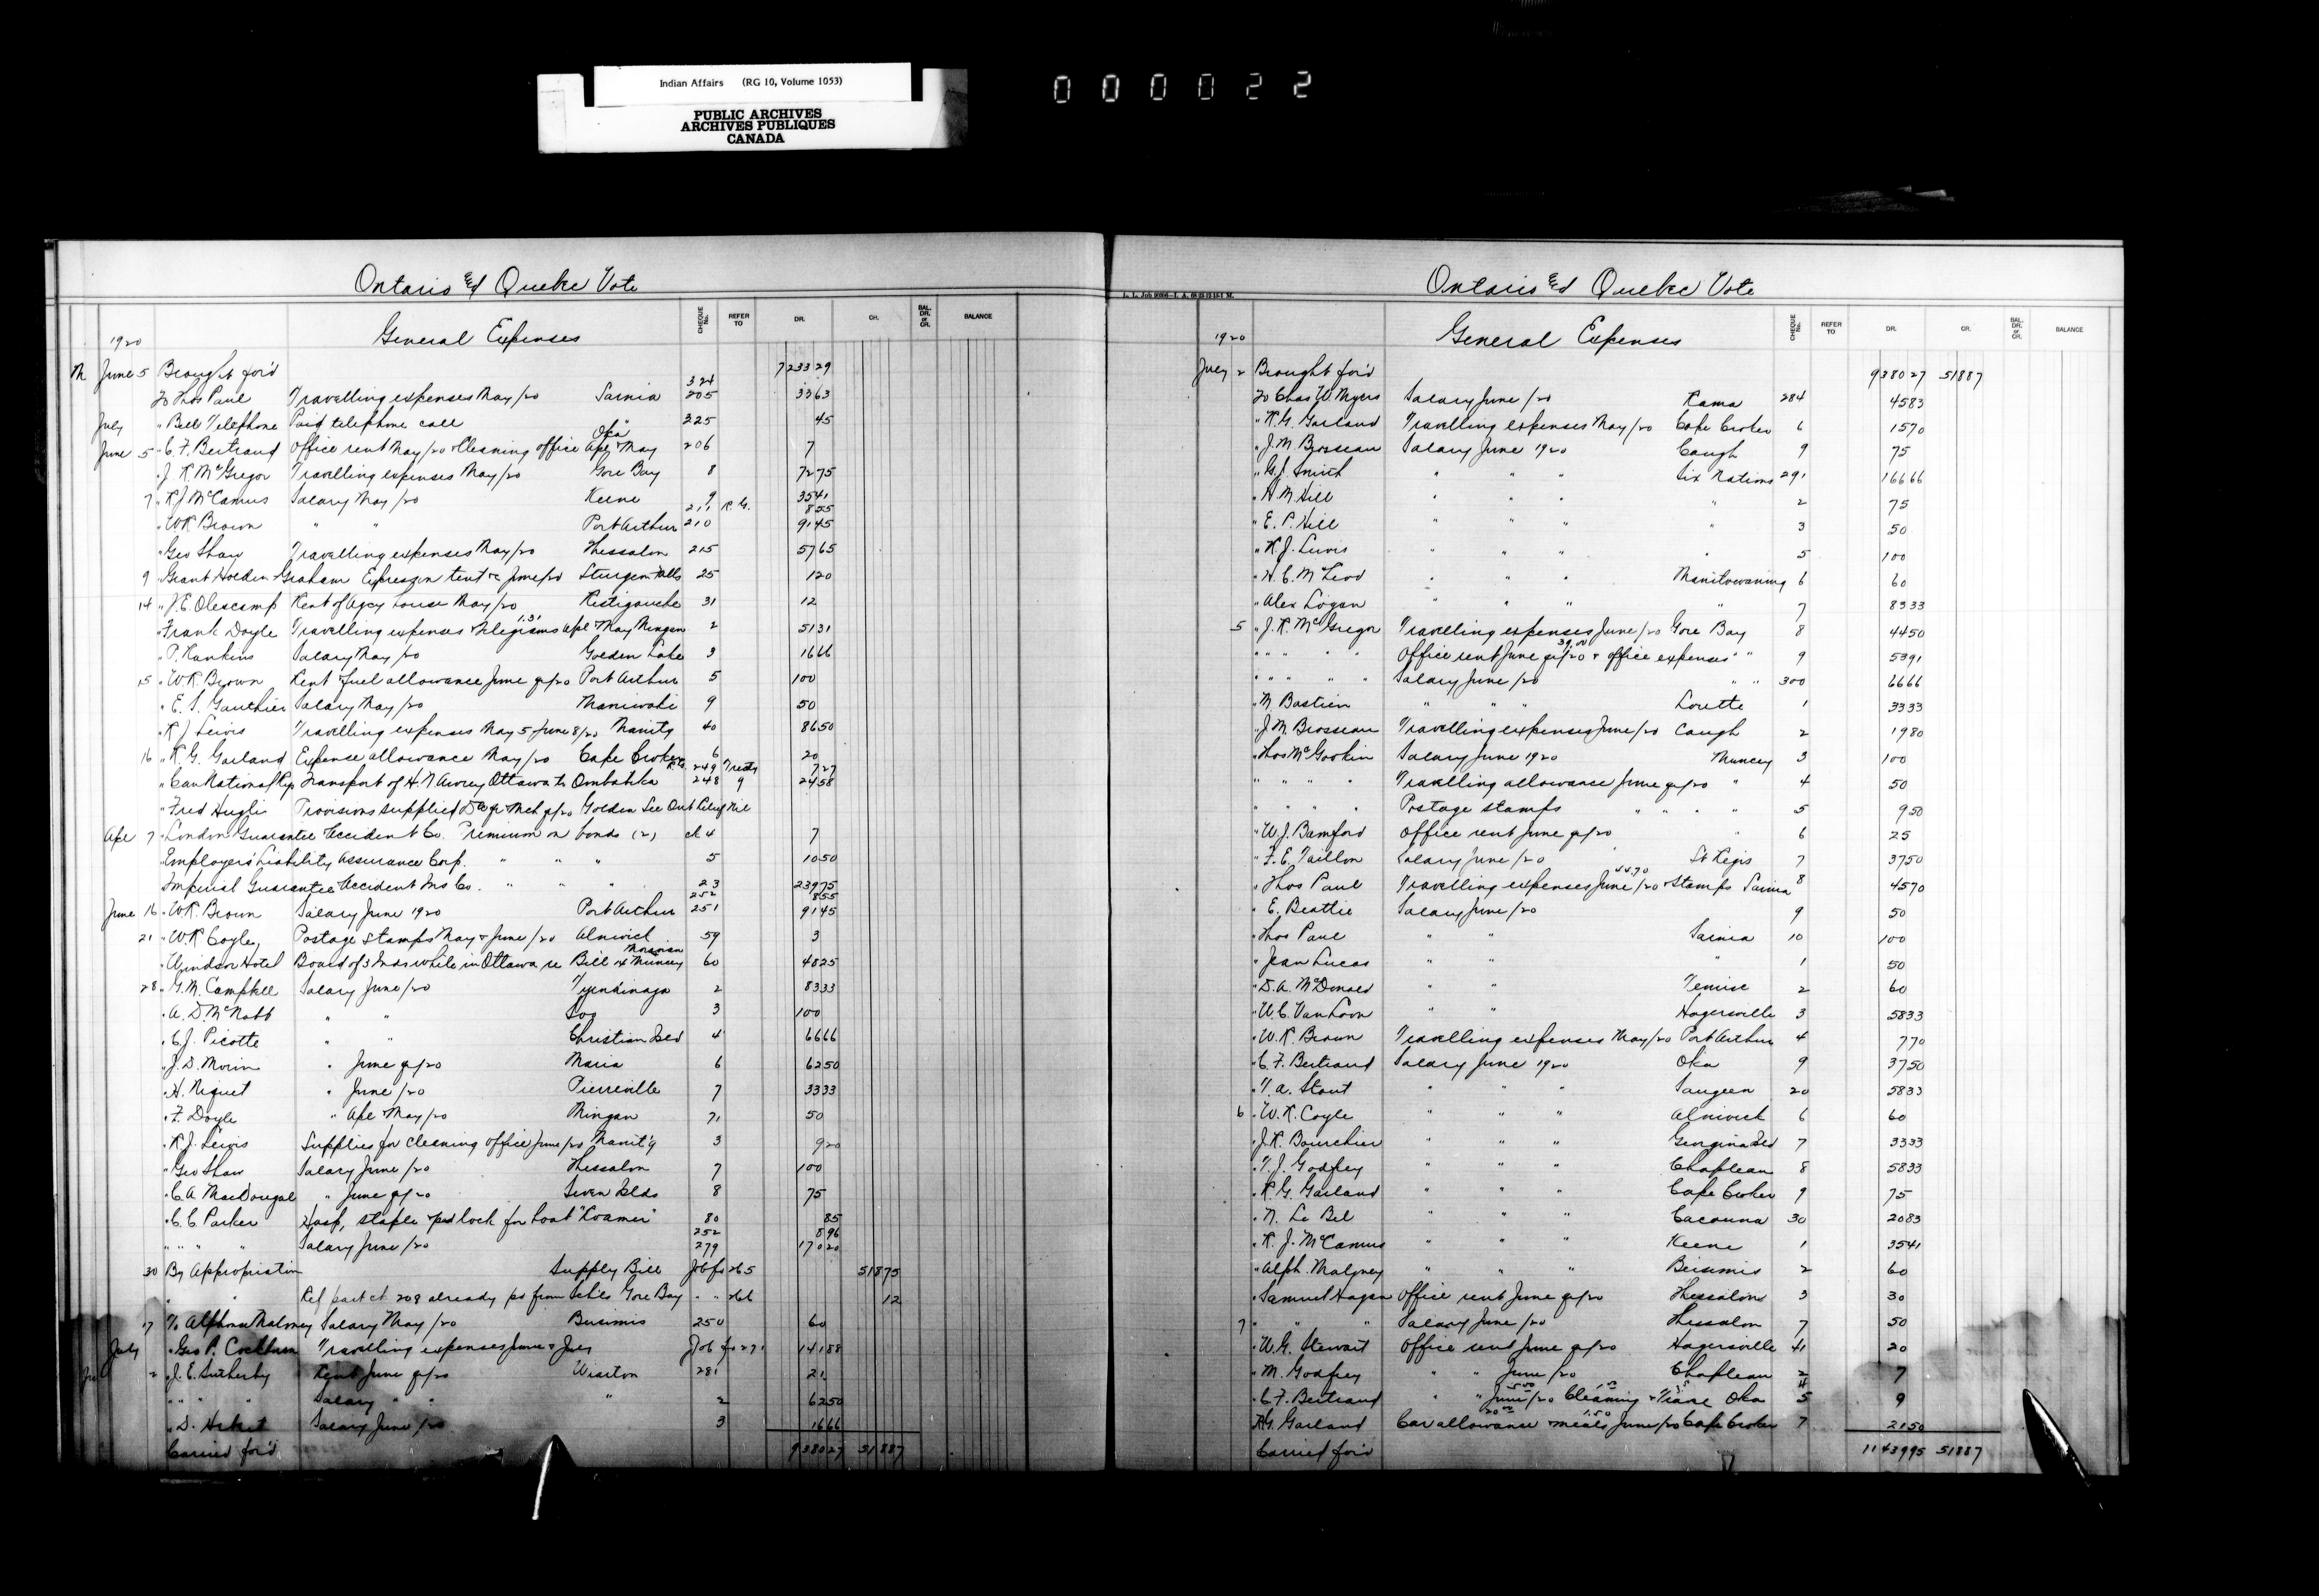 Indian Affairs (RG 10, Volume 1053)
PUBLIC ARCHIVES
ARCHIVES PUBLIQUES
CANADA
000022
Ontario & Quebec Vote
1920 General Expenses CHEQUE No. REFER TO DR. CR. BAL. DR. or CR. BALANCE
June 5 Brought for'd 7233 29
To Thos Paul Travelling expenses May/20 Sarnia 324 205 33 63
July " Bell Telephone Paid telephone call " 325 45
June 5 " C. F. Bertrand Office rent May/20 & Cleaning office Apl & May Oka 206 7
" J. R. McGregor Travelling expenses May/20 Gore Bay 8 72 75
7 " R J McCamus Salary May/20 Keene 9 35 41
" W R Brown " " Port Arthur 211 R.G. 8 55
210 91 45
" Geo Shaw Travelling expenses May/20 Thessalon 215 57 65
9 " Grant Holden Graham Express on tent &c June/20 Sturgeon Falls 25 1 20
14 " J. E. Olescamp Rent of Agcy house May/20 Restigouche 31 12
" Frank Doyle Travelling expenses & telegrams 1.31 Apl & May Mingan 2 51 31
" P. Rankins Salary May/20 Golden Lake 3 16 66
15 " W R. Brown Rent & fuel allowance June qr/20 Port Arthur 5 100
" E. S. Gauthier Salary May/20 Maniwaki 9 50
" R J Lewis Travelling expenses May 5 - June 8/20 Manitg 40 86 50
16 " R. G. Garland Expense allowance May/20 Cape Croker 6 20
" Can National Rys Transport of H. N Awrey Ottawa to Ombabika R.G. 249 Treaty 7 27
248 9 24 58
" Fred Hugli Provisions supplied Dec qr & Mch qr/20 Golden See Ont Relief Nil
Apl 7 " London Guarantee & Accident Co. Premium on bonds (2) ch 4 7
" Employers' Liability Assurance Corp. " " " 5 10 50
" Imperial Guarantee & Accident Ins Co. " " " 23 239 75
June 16 " W R. Brown Salary June 1920 Port Arthur 252 8 55
251 91 45
21 " W. R Coyle, Postage stamps May & June/20 Alnwick 59 3
" Windsor Hotel Board of 3 Inds while in Ottawa re Bill 14 Moravian & Muncey 60 48 25
28 " G. M. Campbell Salary June/20 Tyendinaga 2 83 33
" A. D. McNabb " " Soo 3 100
" C. J. Picotte " " Christian Isld 4 66 66
" J. D. Morin " June qr/20 Maria 6 62 50
" H. Niquet " June/20 Pierreville 7 33 33
" F. Doyle " Apl & May/20 Mingan 71 50
" R. J. Lewis Supplies for cleaning office June/20 Manit'g 3 9 20
" Geo Shaw Salary June/20 Thessalon 7 100
" C. A. MacDougal " June qr/20 Seven Islds 8 75
" C. C Parker Hasp, staple & padlock for boat "Roamer" 80 85
" " " " Salary June/20 252 8 96
279 170 20
30 By Appropriation Supply Bill Job fo 265 518 75
" " Ref part ch 208 already pd from Schls Gore Bay " " 266 12
17 To Alphonse Maloney Salary May/20 Bersimis 250 60
July " Geo P. Cockburn Travelling expenses June & July Job fo 271 141 88
2 " J. E. Sutherby Rent June qr/20 Wiarton 281 21
" " " Salary " " " 2 62 50
" D. Hebert Salary June/20 3 16 66
Carried for'd 9380 27 518 87
Ontario & Quebec Vote
1920 General Expenses CHEQUE No. REFER TO DR. CR. BAL. DR. or CR. BALANCE
July 2 Brought for'd 9380 27 518 87
To Chas W Myers Salary June/20 Rama 284 45 83
" R. G. Garland Travelling expenses May/20 Cape Croker 6 15 70
" J. M Brosseau Salary June 1920 Caugh 9 75
" G. J. Smith " " " Six Nations 291 166 66
" H M Hill " " " " 2 75
" E. P. Hill " " " " 3 50
" R. J. Lewis " " " " 5 100
" H. C. McLeod " " " Manitowaning 6 60
" Alex Logan " " " " 7 83 33
5 " J. R. McGregor Travelling expenses June/20 Gore Bay 8 44 50
" " " " " Office rent June qr/20 39.00 & office expenses " " 9 53 91
" " " " " Salary June/20 " " 300 66 66
" M. Bastien " " " Lorette 1 33 33
" J. M. Brosseau Travelling expenses June/20 Caugh 2 19 80
" Thos McGookin Salary June 1920 Muncey 3 100
" " " " Travelling allowance June qr/20 " 4 50
" " " " Postage stamps " " " " 5 9 50
" W. J. Bamford Office rent June qr/20 " 6 25
" F. E. Taillon Salary June/20 St Regis 7 37 50
" Thos Paul Travelling expenses June/20 44.70 & Stamps Sarnia 8 45 70
" E. Beattie Salary June/20 9 50
" Thos Paul " " Sarnia 10 100
" Jean Lucas " " " 1 50
" D. A. McDonald " " Temisc 2 60
" W. C. Van Loon " " Hagersville 3 58 33
" W. R. Brown Travelling expenses May/20 Port Arthur 4 7 70
" C. F. Bertrand Salary June 1920 Oka 9 37 50
" T. A. Stout " " " Saugeen 20 58 33
6 " W. R. Coyle " " " Alnwick 6 60
" J. R. Bourchier " " " Georgina Isld 7 33 33
" T. J. Godfrey " " " Chapleau 8 58 33
" R. G. Garland " " " Cape Croker 9 75
" N. Le Bel " " " Cacouna 30 20 83
" R. J. McCamus " " " Keene 1 35 41
" Alph. Maloney " " " Bersimis 2 60
" Samuel Hagan Office rent June qr/20 Thessalon 3 30
7 " " " Salary June/20 Thessalon 7 50
" W. G. Stewart Office rent June qr/20 Hagersville 41 20
" M. Godfrey " " June/20 Chapleau 2 7
" C. F. Bertrand " " June/20 5.00 Cleaning & Oka 5 9
" R G. Garland Car allowance 20.00 & meals 1.50 June/20 Cape Croker 7 21 50
Carried for'd 11439 95 518 87